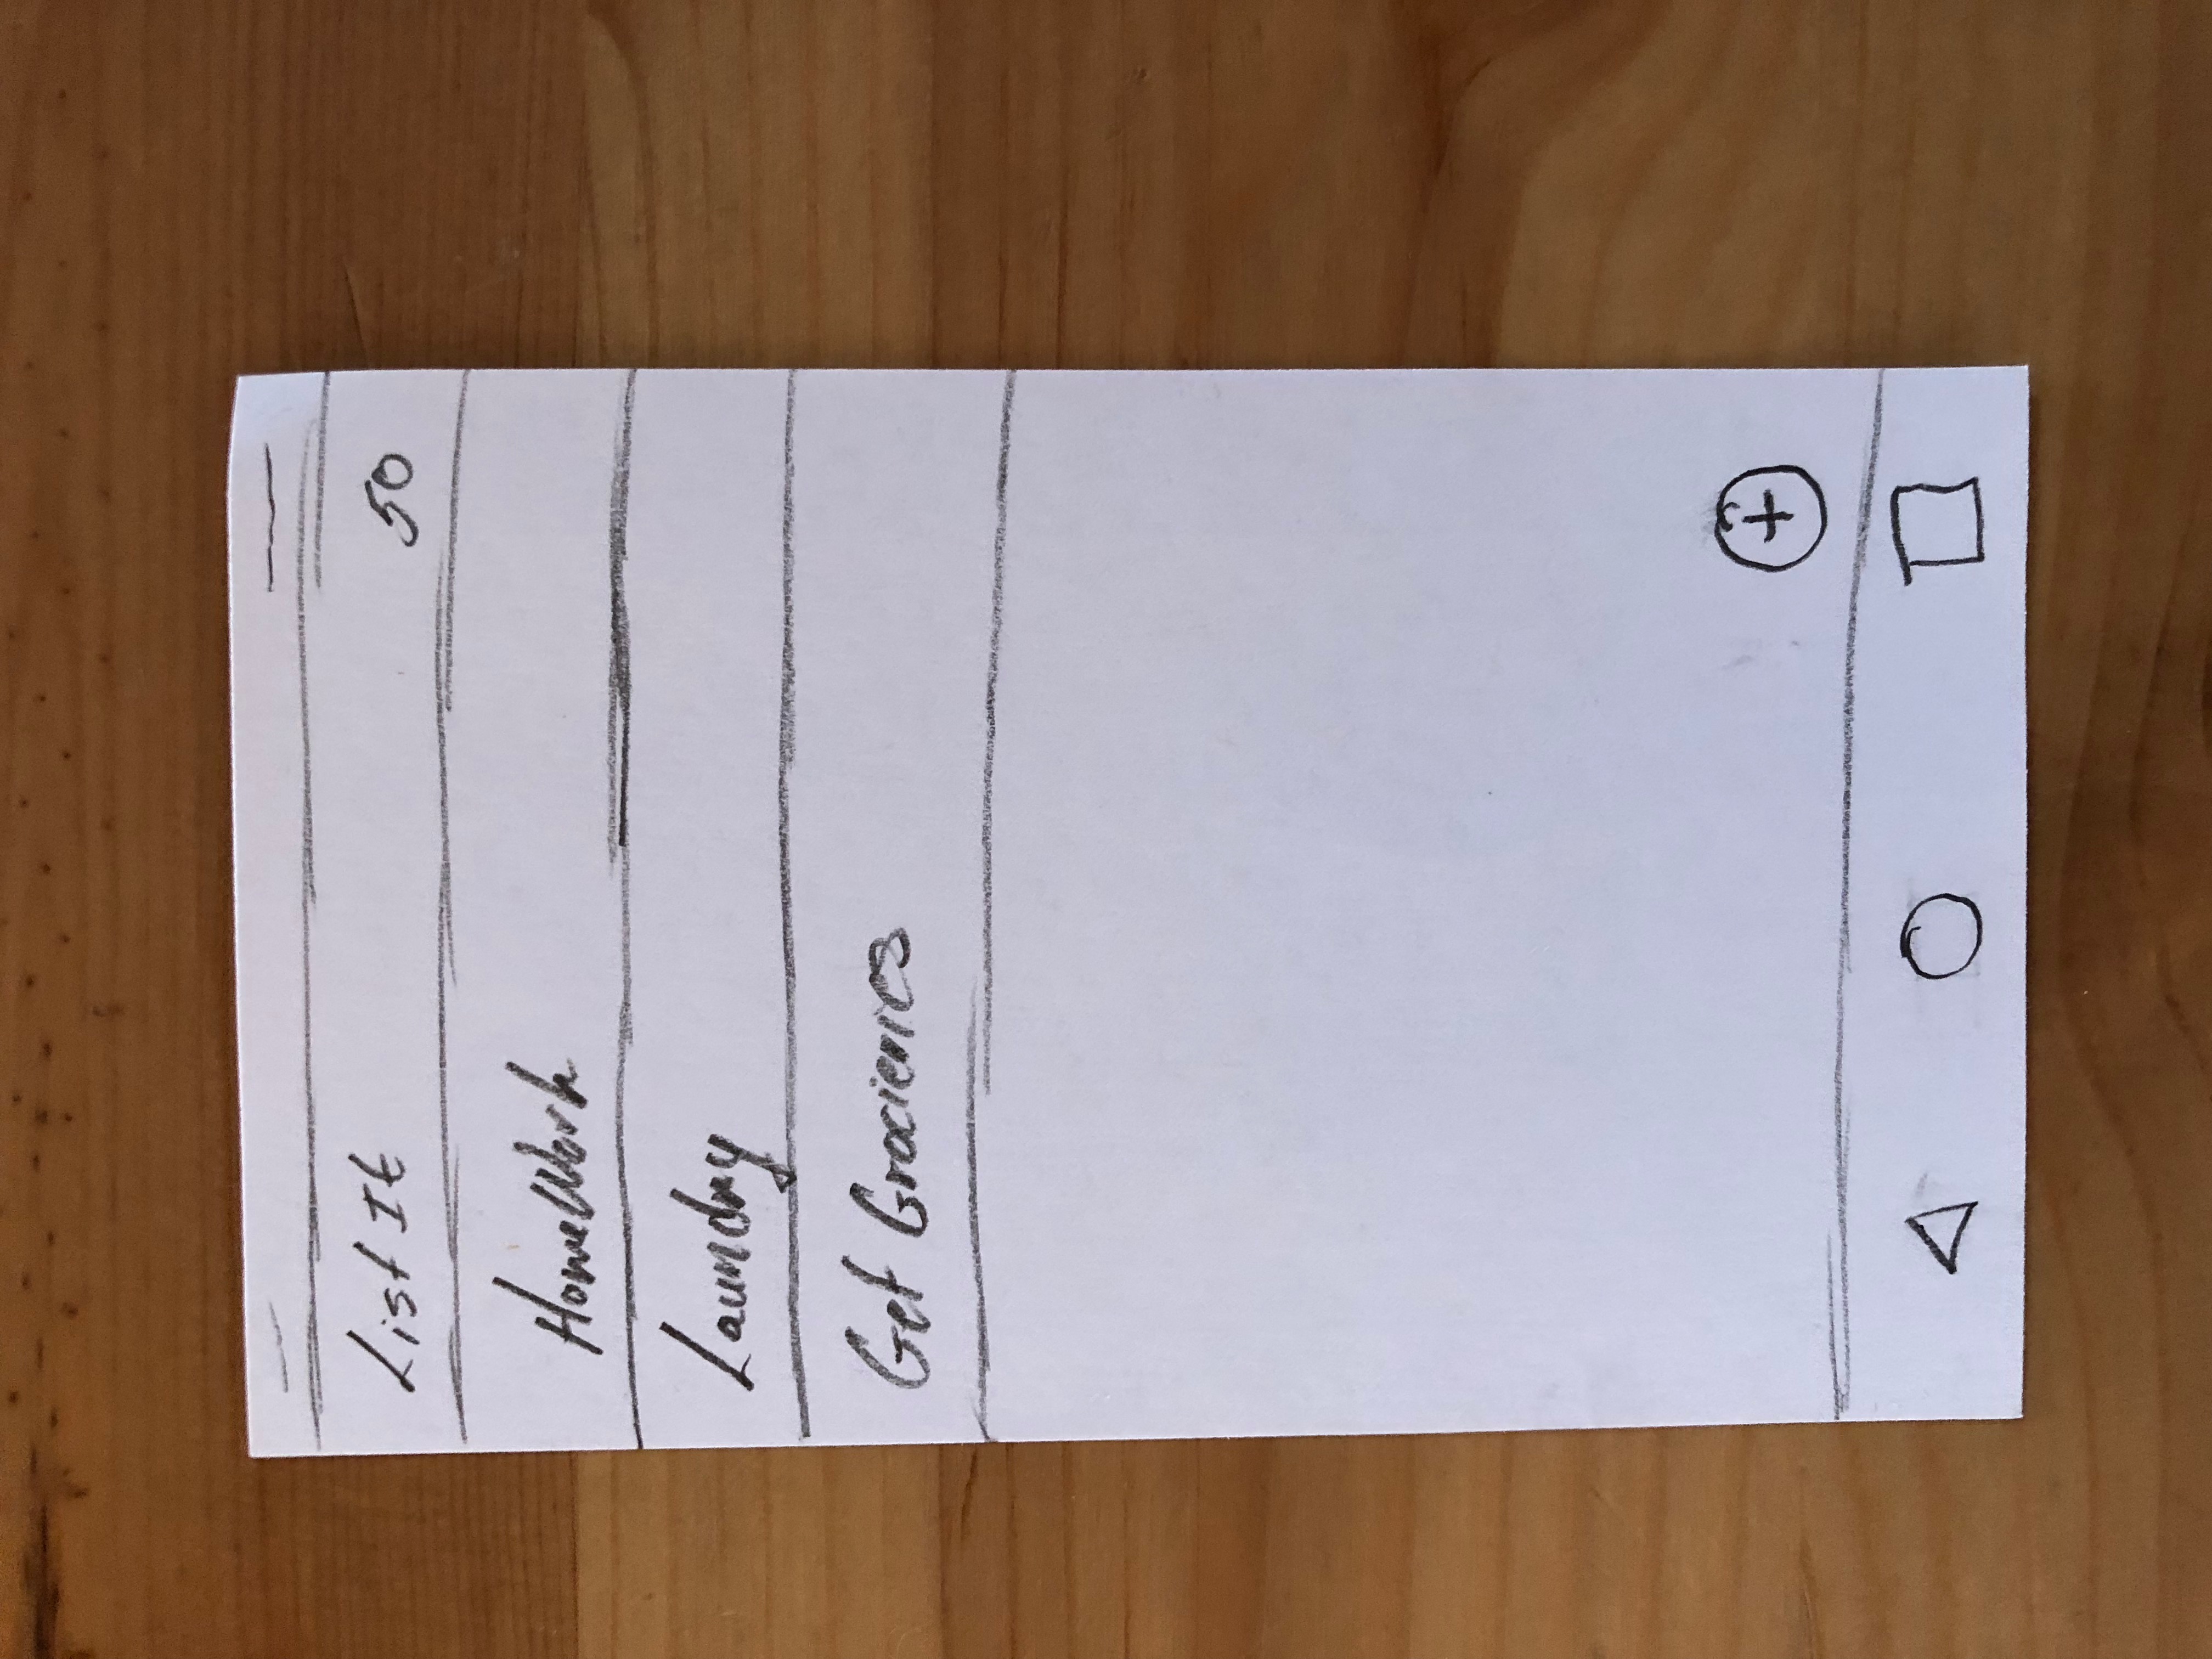 List It 50
HomeWork
Laundry
Get Grocieries
+